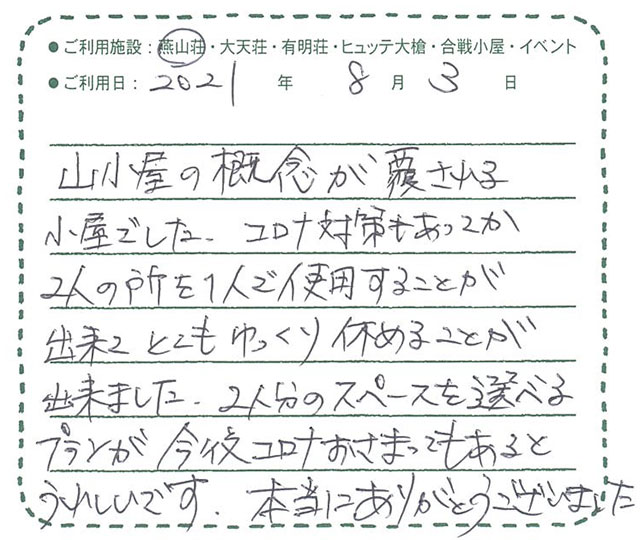 ●ご利用施設：燕山荘・大天荘・有明荘・ヒュッテ大槍・合戦小屋・イベント
●ご利用日：2021年8月3日
山小屋の概念が覆される
小屋でした。コロナ対策もあってか
2人の所を1人で使用することが
出来て とてもゆっくり休めることが
出来ました。2人分のスペースを選べる
プランが今後コロナおさまってもあると
うれしいです。本当にありがとうございました